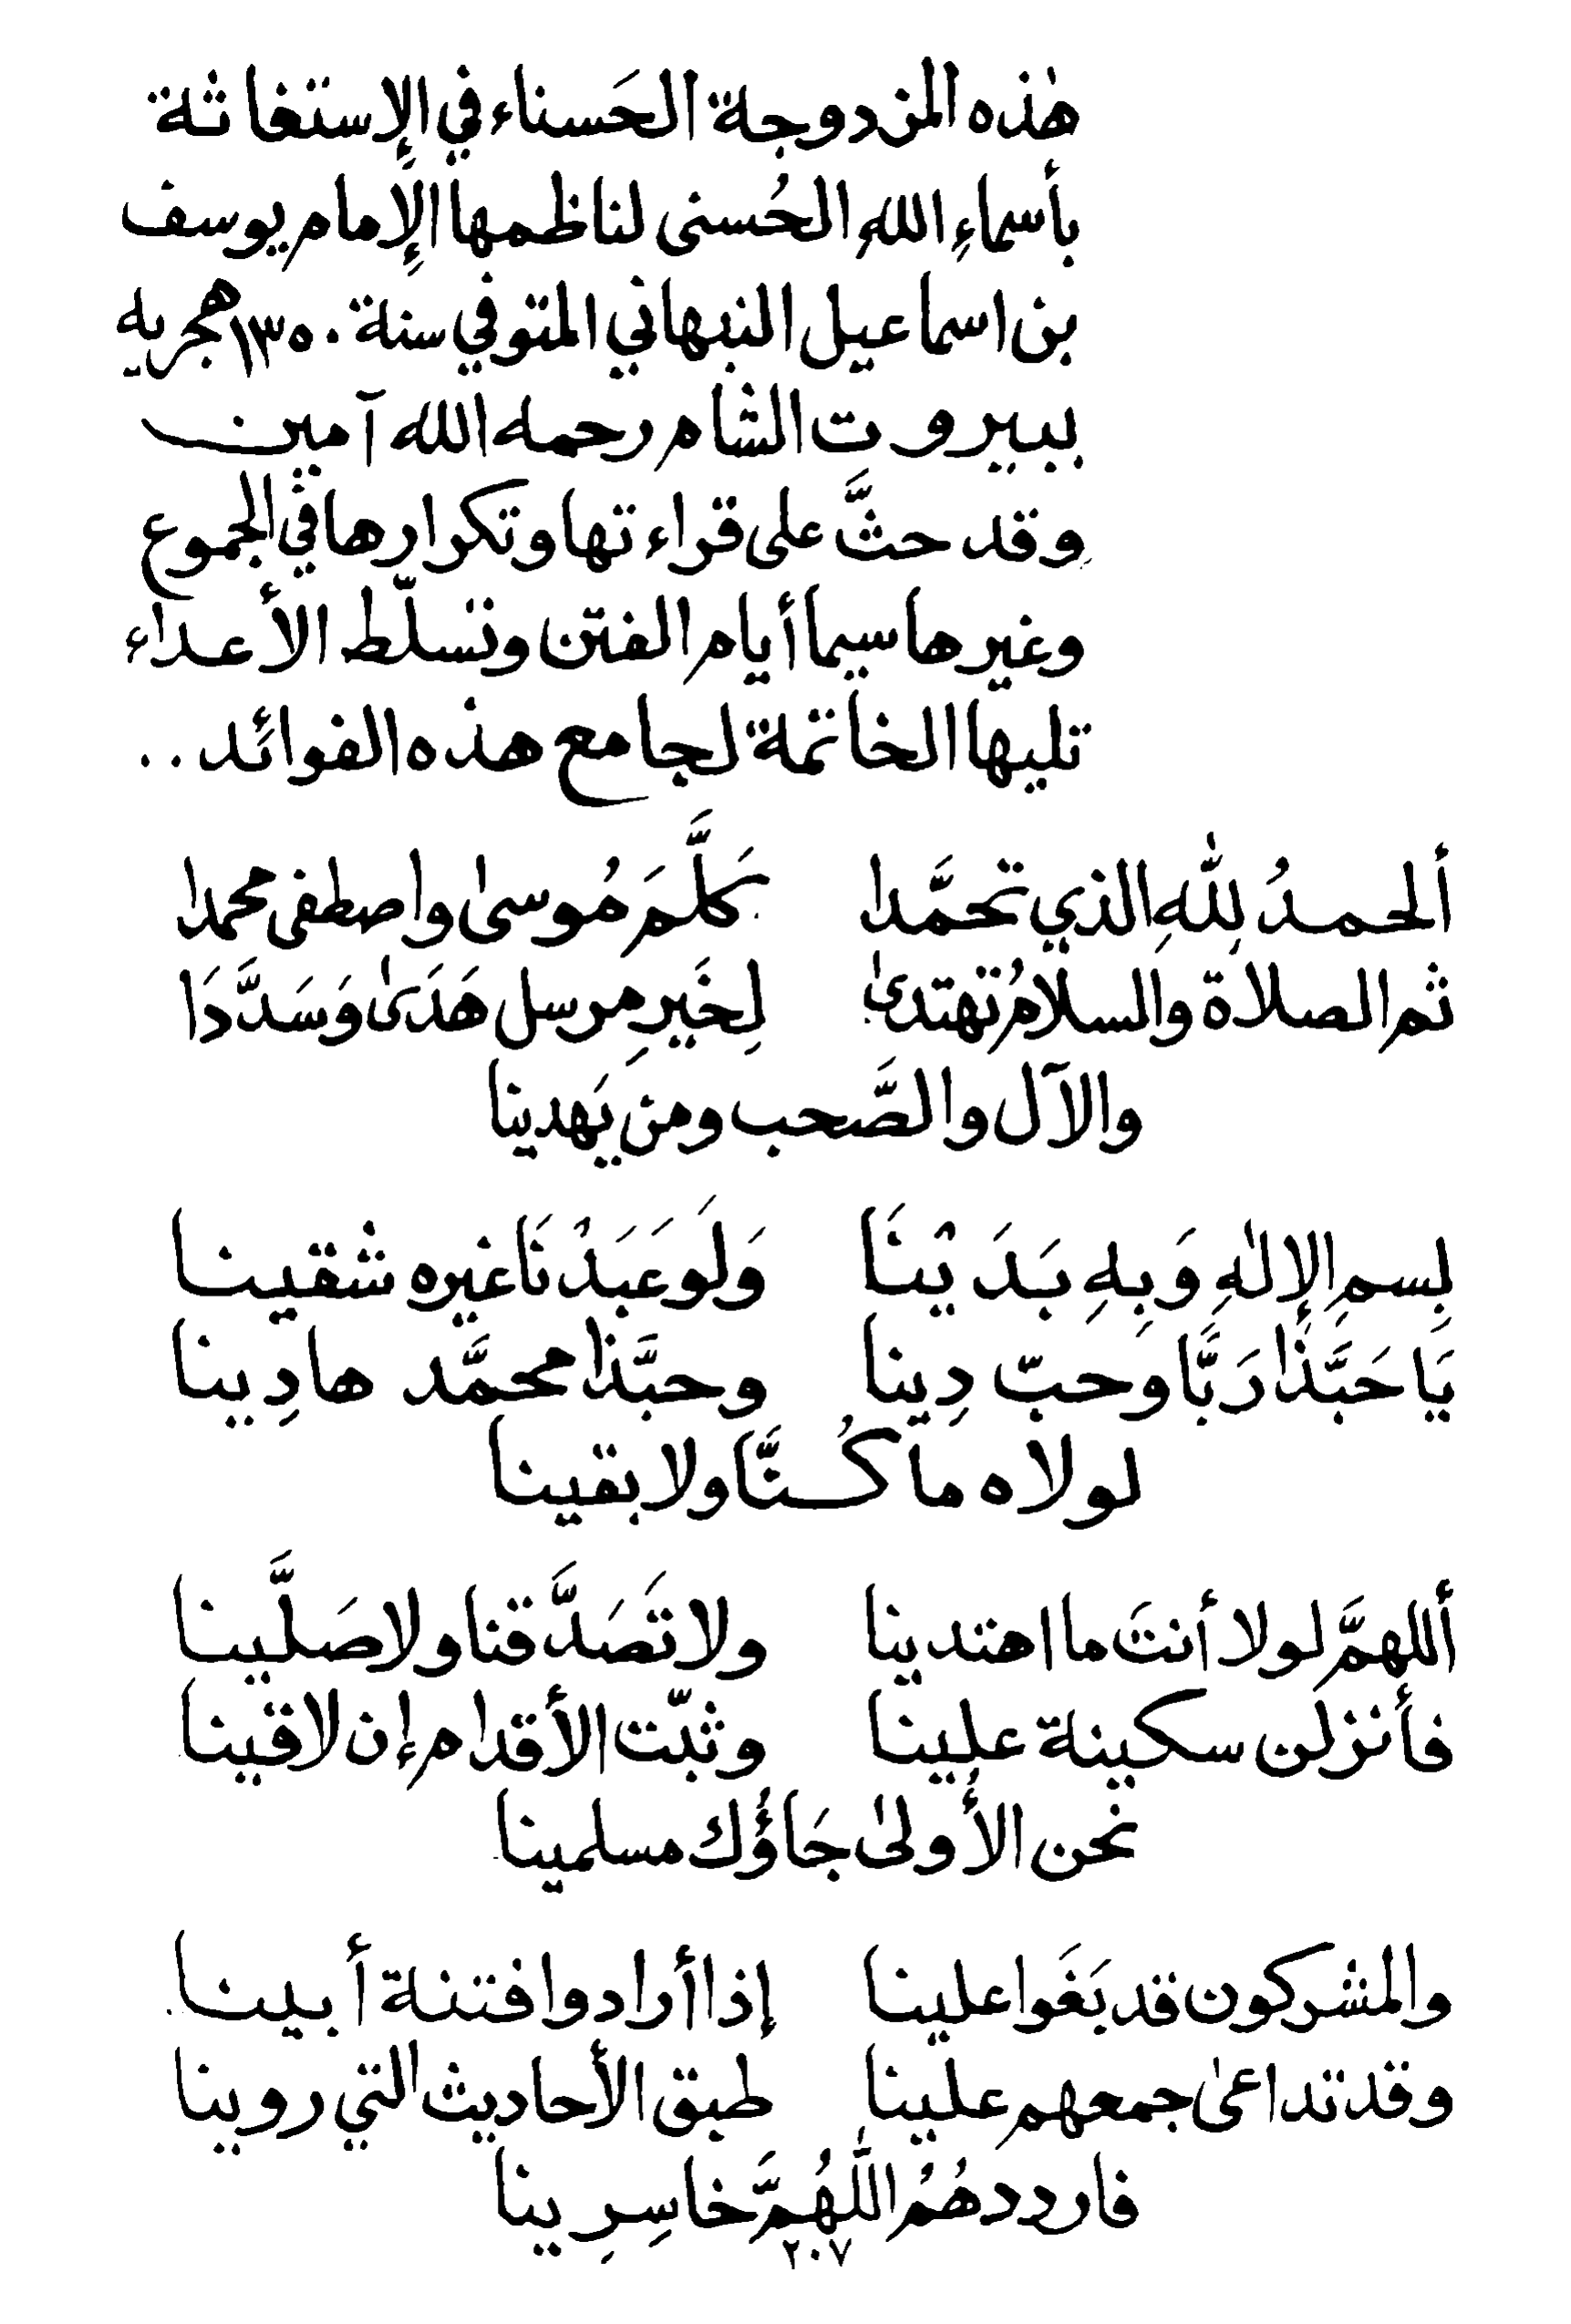 هٰذه المزدوجة الحَسناء في الإستغاثة
بأسماءِ اللهِ الحُسنى لناظمها الإمام يوسف
بن اسماعيل النبهاني المتوفي سنة ١٣٥٠ هجريه
ببيروت الشام رحمه الله آمين
وقد حثَّ على قراءتها وتكرارها في الجموع
وغيرها سيما أيام الفتن وتسلّط الأعداء
تليها الخاتمة لجامع هذه الفوائد ..
ألحمدُ لِلّٰهِ الذي تحمَّدا كَلَّمَ مُوسىٰ واصطفى محمدا
ثم الصلاة والسلامُ تهتدىٰ لِخَيرِ مرسل هَدَىٰ وَسَدَّدَا
والآل والصَّحب ومن يَهدينا
بِسمِ الإِلٰهِ وَبِهِ بَدَيْنَا وَلَو عَبَدْنَا غيره شقينا
يَا حَبَّذَا رَبًّا وَحبّ دِينا وحبَّذا محمَّد هادِينا
لولاه ما كُنَّا ولا بقينا
أللهمَّ لولا أنتَ ما اهتدينا ولا تَصَدَّقنا ولا صَلَّينا
فأنزلن سكينة علينا وثبّت الأقدام إن لاقينا
نحن الأُولىٰ جَاؤُك مسلمينا
والمشركون قد بَغَوا علينا إذا أرادوا فتنة أبينا
وقد تداعىٰ جمعهم علينا طبق الأحاديث التي روينا
فارددهُمُ اللّٰهُمَّ خاسِرِينا
٢٠٧